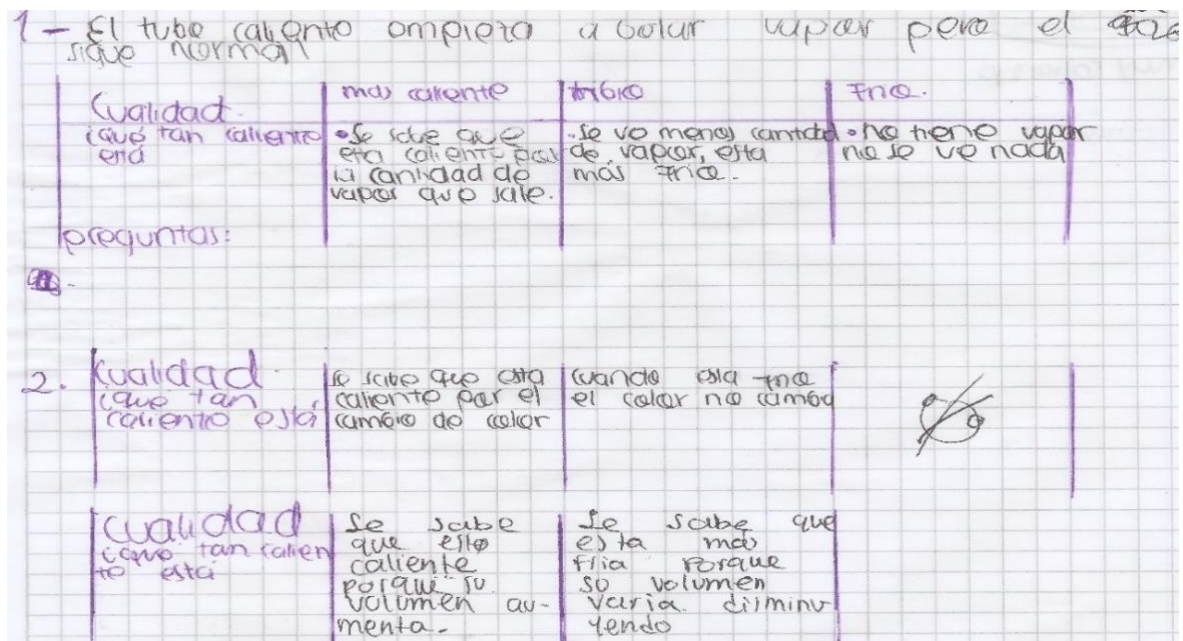 1 - El tubo caliento empieza a botar vapor pero el
sigue normal
Cualidad.
¿qué tan caliento
está
mas caliente
• Se sabe que
esta caliente por
la cantidad de
vapor que sale.
tribio
• Se ve menos cantidad
de vapor, esta
más Frio.
Frio.
• no tiene vapor
no se ve nada
preguntas:
2. Cualidad
¿que tan
caliento está
se sabe que esta
caliente por el
cambio de color
cuando esta frio
el color no cambia
Cualidad
¿que tan calien
to está
Se sabe
que esto
caliente
porque su
volumen au-
menta.
Se sabe que
esta mas
fria porque
su volumen
varia disminu
yendo